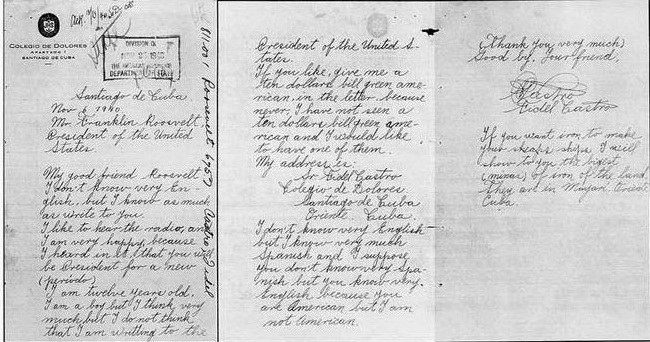 COLEGIO DE DOLORES
APARTADO 1
SANTIAGO DE CUBA
DIVISION OF
THE AMERICAN REPUBLICS
DEPARTMENT OF STATE
Santiago de Cuba.
Nov 6 1940.
Mr. Franklin Roosvelt
President of the United
States.
My good friend Roosvelt
I don't know very En-
glish, but I know as much
as write to you.
I like to hear the radio, and
I am very happy, because
I heard in it, that you will
be President for a new
(periodo)
I am twelve years old.
I am a boy but I think very
much but I do not think
that I am writting to the
811.001 Roosevelt 6757 Castro, Fidel
President of the United S-
tates.
If you like, give me a
ten dollars bill green ame-
rican, in the letter, because
never, I have not seen a
ten dollars bill green ame-
rican and I would like
to have one of them.
My address is:
Sr. Fidel Castro
Colegio de Dolores.
Santiago de Cuba
Oriente. Cuba.
I don't know very English
but I know very much
Spanish and I suppose
you don't know very Spa-
nish but you know very
English because you
are American but I am
not American.
(Thank you very much)
Good by. Your friend,
Castro
Fidel Castro
If you want iron to make
your sheaps ships I will
show to you the bigest
(minas) of iron of the land.
They are in Mayarí. Oriente
Cuba.